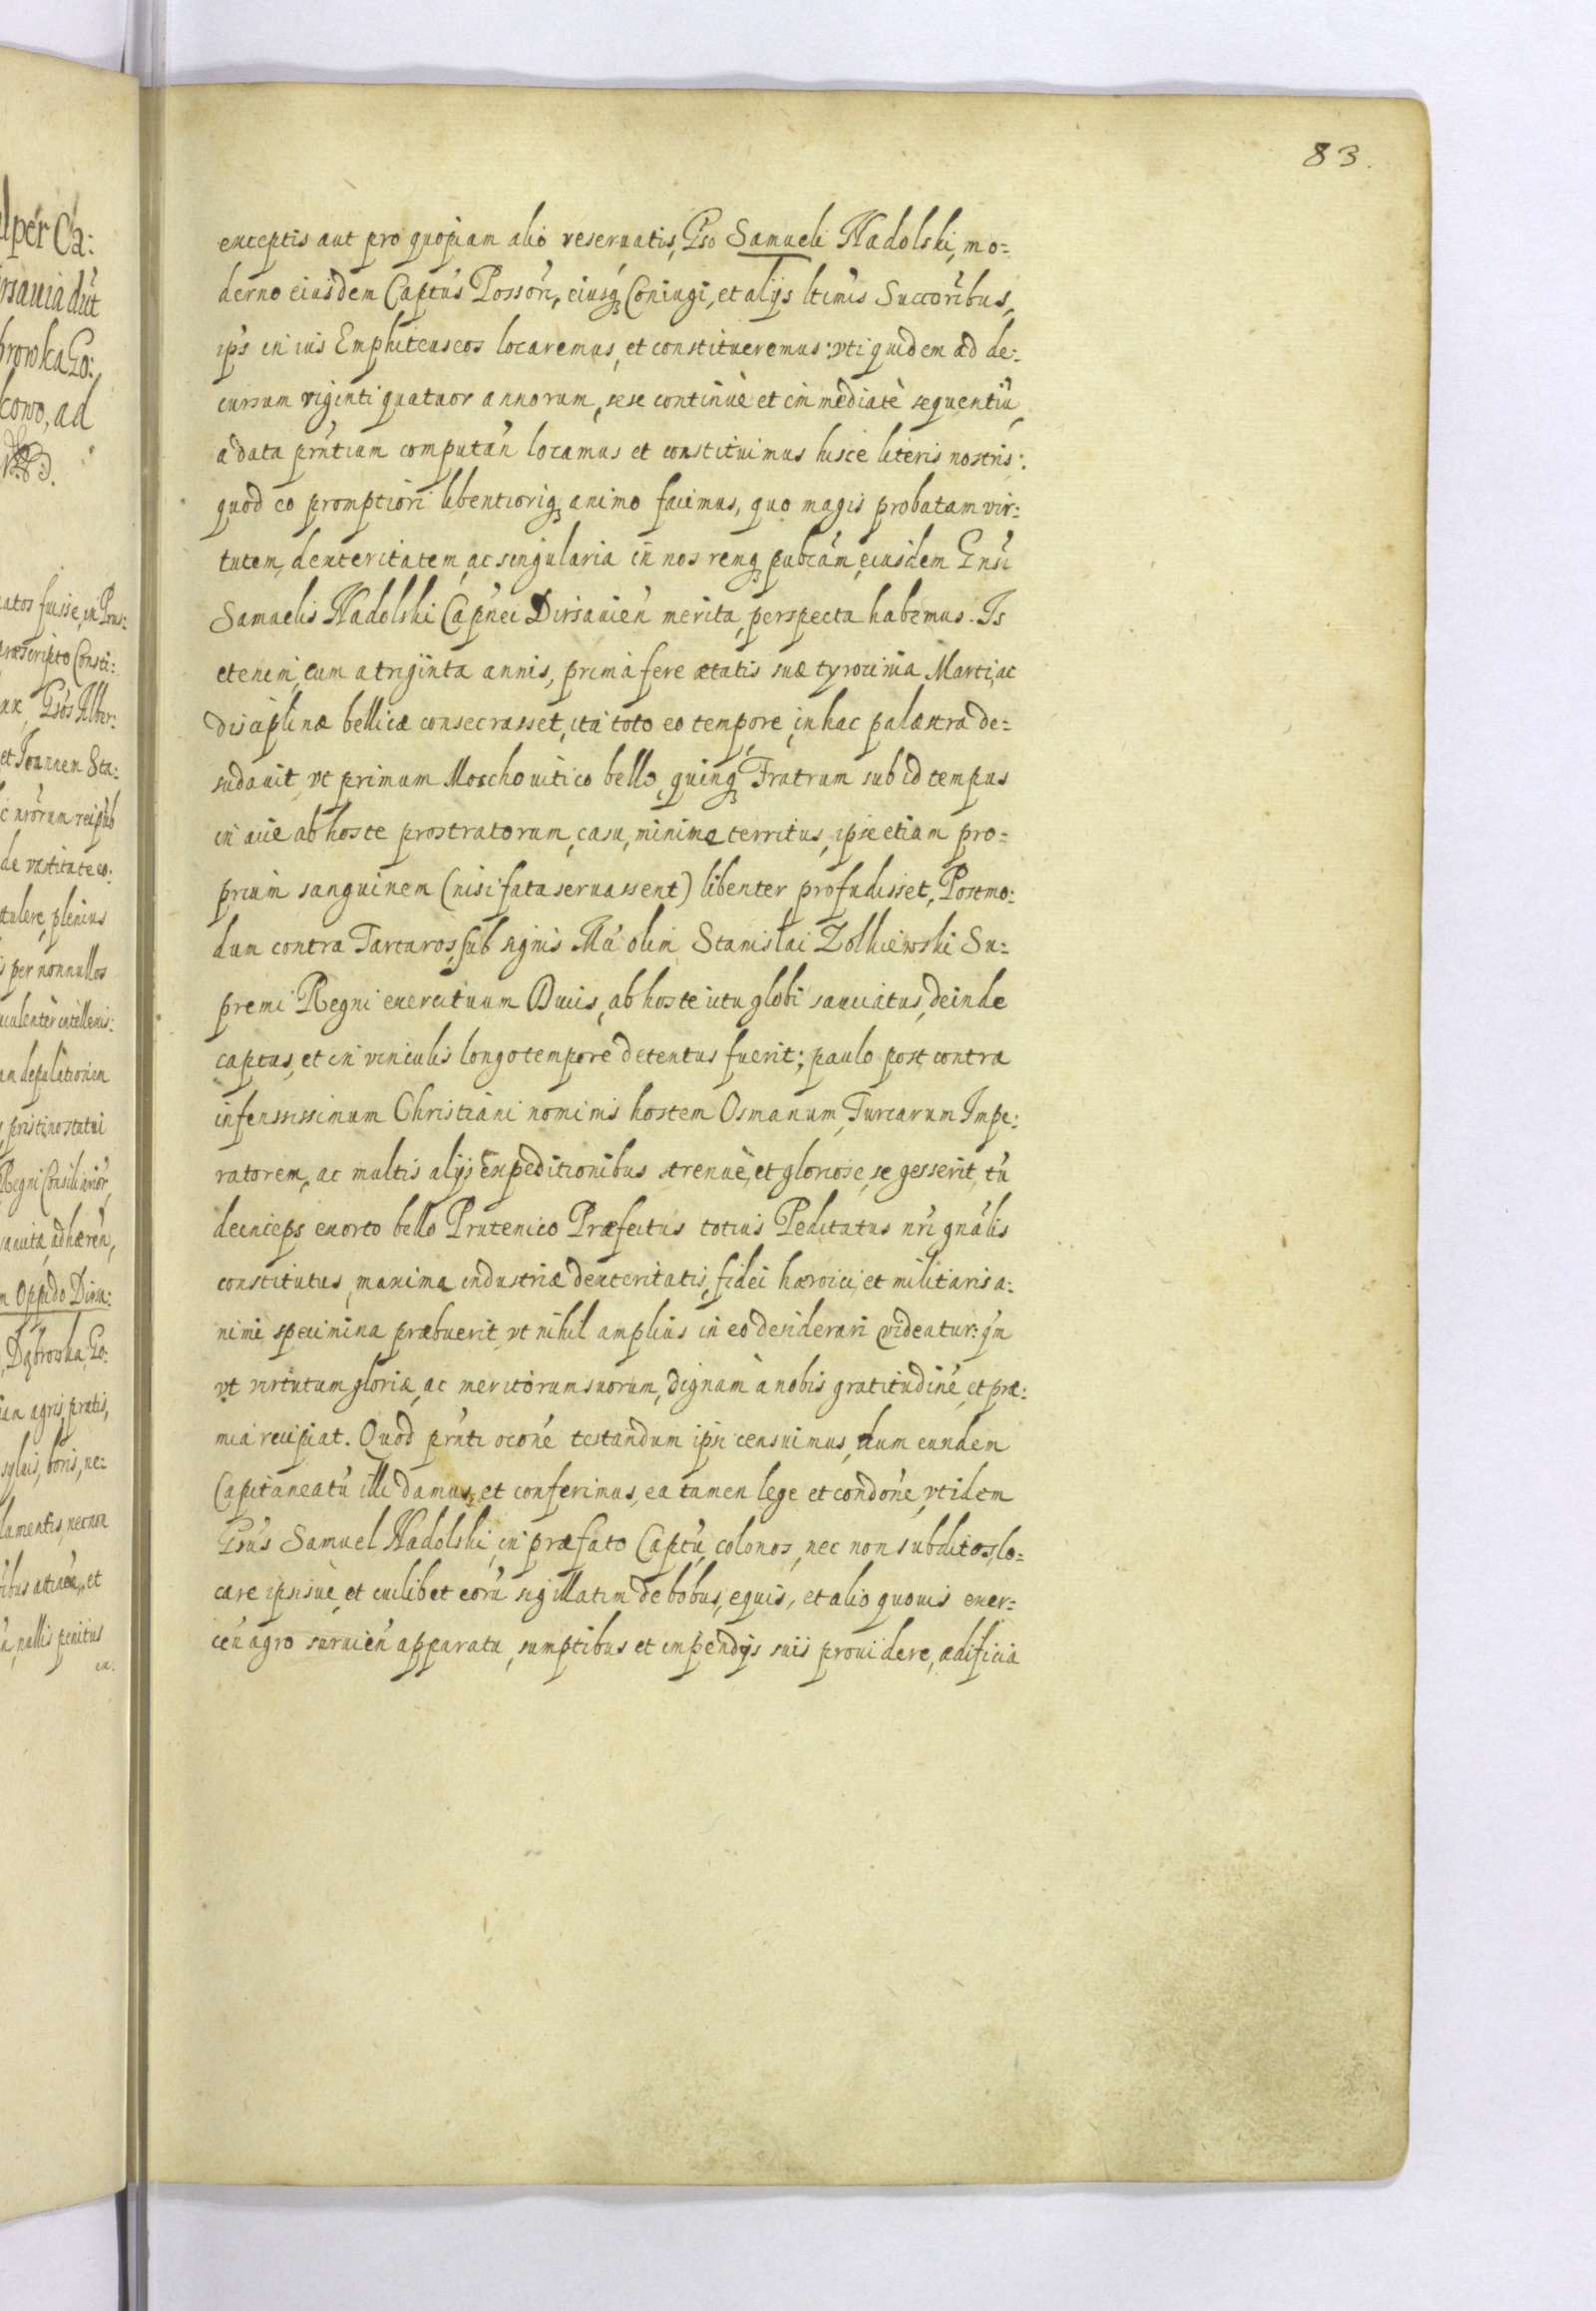 83.
exceptis aut pro quopiam alio reseruatis, Gso Samueli Nadolski, mo=
derno eiusdem Captus Possori, eiusq Coniugi, et alijs ltimis Succoribus,
ips in ius Emphiteuseos locaremus, et constitueremus: vti quidem ad de:
cursum viginti quatuor annorum, sese continuè et immediatè sequentiu,
a data pntium computan locamus et constituimus hisce literis nostris:
quod eo promptiori libentioriq animo facimus, quo magis probatam vir:
tutem, dexteritatem, ac singularia in nos remq pubcam, eiusdem Gnsi
Samuelis Nadolski Capnei Dirsauien merita, perspecta habemus. Is
etenim, cum a triginta annis, prima fere ætatis suæ tyrocinia Marti, ac
disciplinæ bellicæ consecrasset, ita toto eo tempore, in hac palæstra de=
sudauit, vt primum Moschouitico bello, quinq Fratrum sub id tempus
in acie ab hoste prostratorum, casu, minime territus, ipse etiam pro=
prium sanguinem (nisi fata seruassent) libenter profudisset, Postmo:
dum contra Tartaros, sub signis Mci olim Stanislai Zolkiewski Su=
premi Regni exercituum Ducis, ab hoste ictu globi sauciatus, deinde
captus, et in vinculis longo tempore detentus fuerit; paulo post contra
infenssissimum Christiani nominis hostem Osmanum, Turcarum Impe:
ratorem, ac multis alijs expeditionibus strenuè, et gloriose, se gesserit, tu
deinceps exorto bello Prutenico Præfectus totius Peditatus nri gnalis
constitutus, maxima industriæ dexteritatis, fidei hæroici, et militaris a:
nimi specimina præbuerit, vt nihil amplius in eo desiderari videatur: qn
vt virtutum gloriæ, ac meritorum suorum, dignam à nobis gratitudine, et præ:
mia recipiat. Quod pnti ocone testandum ipsi censuimus, dum eundem
Capitaneatu illi damus, et conferimus, ea tamen lege et condone, vt idem
Gsus Samuel Nadolski, in præfato Captu, colonos, nec non subditos, lo=
care ipsisue, et cuilibet eoru sigillatim de bobus, equis, et alio quouis exer=
cen agro seruien apparatu, sumptibus et impendijs suis prouidere, ædificia